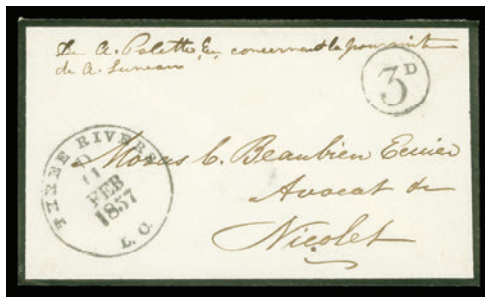 de A. Polette Ecr concernant la poursuite
de A. Luneau
3D
THREE RIVERS
11
FEB
1857
L.C.
Moras C. Beaubien Ecuier
Avocat de
Nicolet